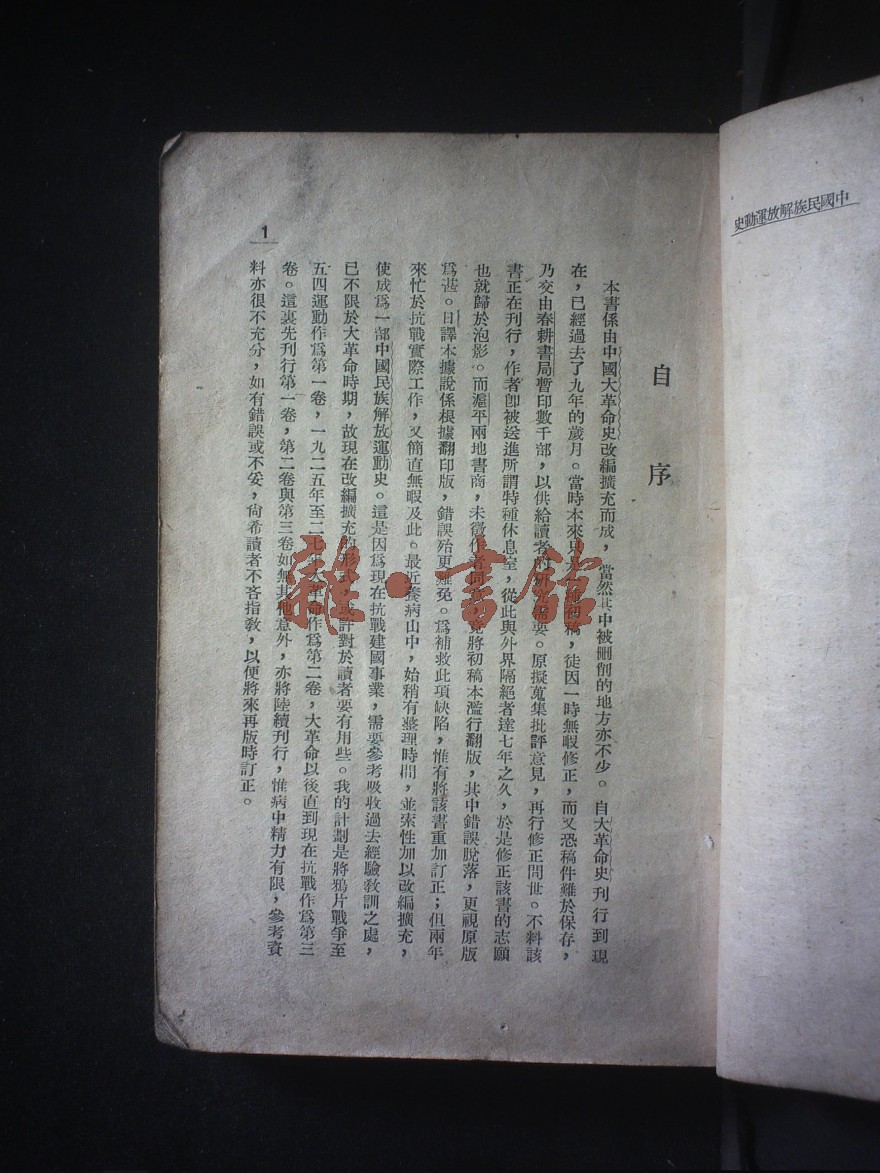 中國民族解放運動史
自序
本書係由中國大革命史改編擴充而成，當然其中被刪削的地方亦不少。自大革命史刊行到現
在，已經過去了九年的歲月。當時本來只是初稿，徒因一時無暇修正，而又恐稿件難於保存，
乃交由春耕書局暫印數千部，以供給讀者的需要。原擬蒐集批評意見，再行修正問世。不料該
書正在刊行，作者卽被送進所謂特種休息室，從此與外界隔絕者達七年之久，於是修正該書的志願
也就歸於泡影。而滬平兩地書商，未徵作者同意，竟將初稿本濫行翻版，其中錯誤脫落，更視原版
爲甚。日譯本據說係根據翻印版，錯誤殆更難免。爲補救此項缺陷，惟有將該書重加訂正；但兩年
來忙於抗戰實際工作，又簡直無暇及此。最近養病山中，始稍有整理時間，並索性加以改編擴充，
使成爲一部中國民族解放運動史。這是因爲現在抗戰建國事業，需要參考吸收過去經驗教訓之處，
已不限於大革命時期，故現在改編擴充的形式，或許對於讀者要有用些。我的計劃是將鴉片戰爭至
五四運動作爲第一卷，一九二五年至二七年大革命作爲第二卷，大革命以後直到現在抗戰作爲第三
卷。這裏先刊行第一卷，第二卷與第三卷如無其他意外，亦將陸續刊行，惟病中精力有限，參考資
料亦很不充分，如有錯誤或不妥，尙希讀者不吝指敎，以便將來再版時訂正。
1
雜·書館